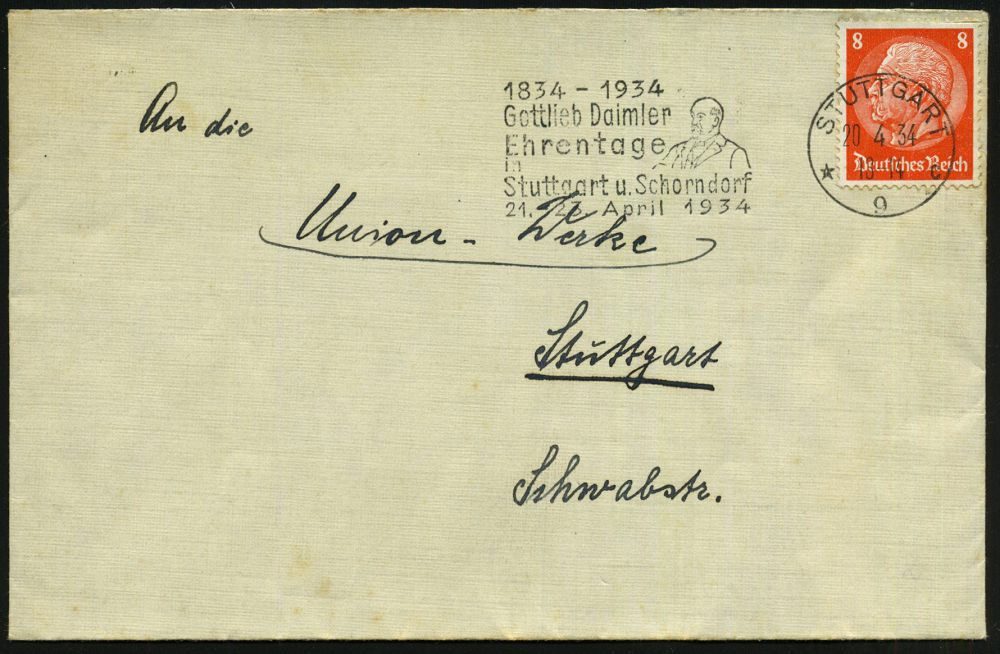 8 8
Deutsches Reich
STUTTGART
20 4.34
9
1834 - 1934
Gottlieb Daimler
Ehrentage
in
Stuttgart u. Schorndorf
21. 23. April 1934
An die
Union - Werke
Stuttgart
Schwabstr.